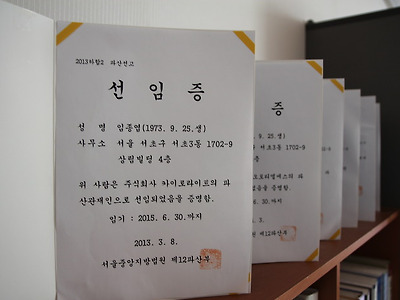 2013하합2 파산선고
선 임 증
성 명 임종엽(1973. 9. 25.생)
사무소 서울 서초구 서초3동 1702-9
상림빌딩 4층
위 사람은 주식회사 카이로라이프의 파
산관재인으로 선임되었음을 증명함.
임기 : 2015. 6. 30.까지
2013. 3. 8.
서울중앙지방법원 제12파산부
증
9. 25.생)
서초3동 1702-9
4층
증명함.
6. 30.까지
3.
제12파산부